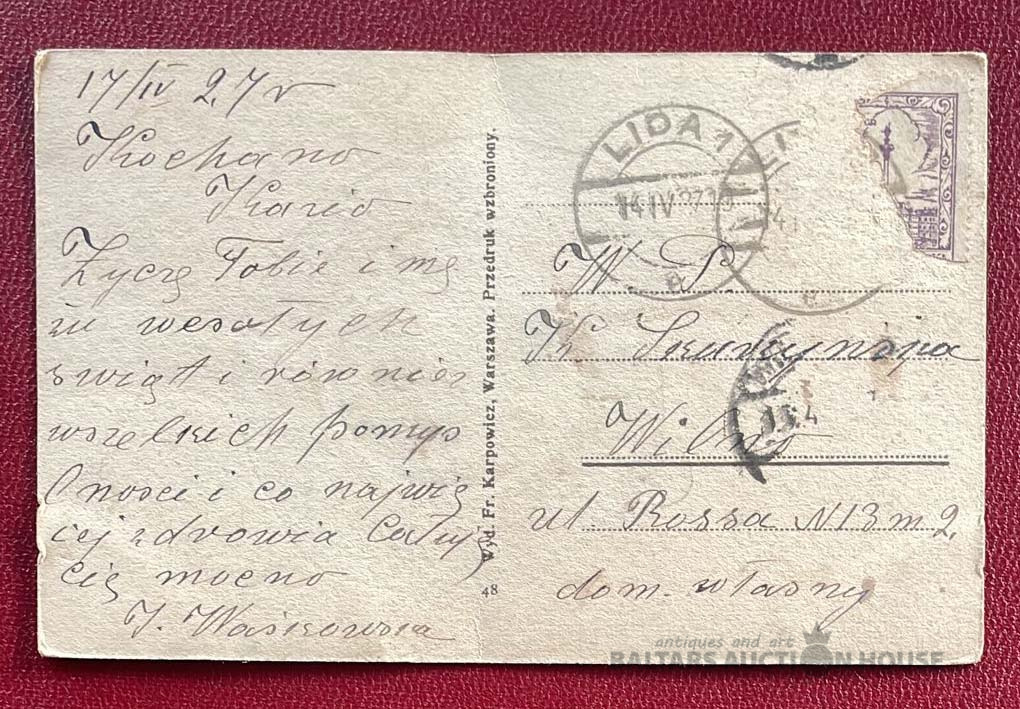 17/IV 27 r
Kochano
Kaziо
Życzę Tobie i mę
żu wesołych
świąt i również
wszelkich pomyś
lności i co najwię
cej zdrowia Całuję
cię mocno
J. Waśkowska
Wyd. Fr. Karpowicz, Warszawa. Przedruk wzbroniony.
48
LIDA 1
14 IV 27
W. P.
K.
Wilno
ul. Rossa N13 m 2.
dom. własny
antiques and art
BALTARS AUCTION HOUSE